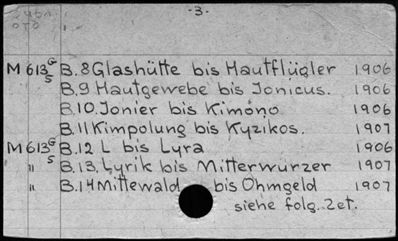 -3-
M 613 G/S B.8 Glashütte bis Hautflügler 1906
B.9 Hautgewebe bis Jonicus. 1906
B.10. Jonier bis Kimono 1906
B.11 Kimpolung bis Kyzikos. 1907
M 613 G/S B.12 L bis Lyra 1906
" B.13. Lyrik bis Mitterwurzer 1907
" B.14 Mittewald bis Ohmgeld 1907
siehe folg. Zet.